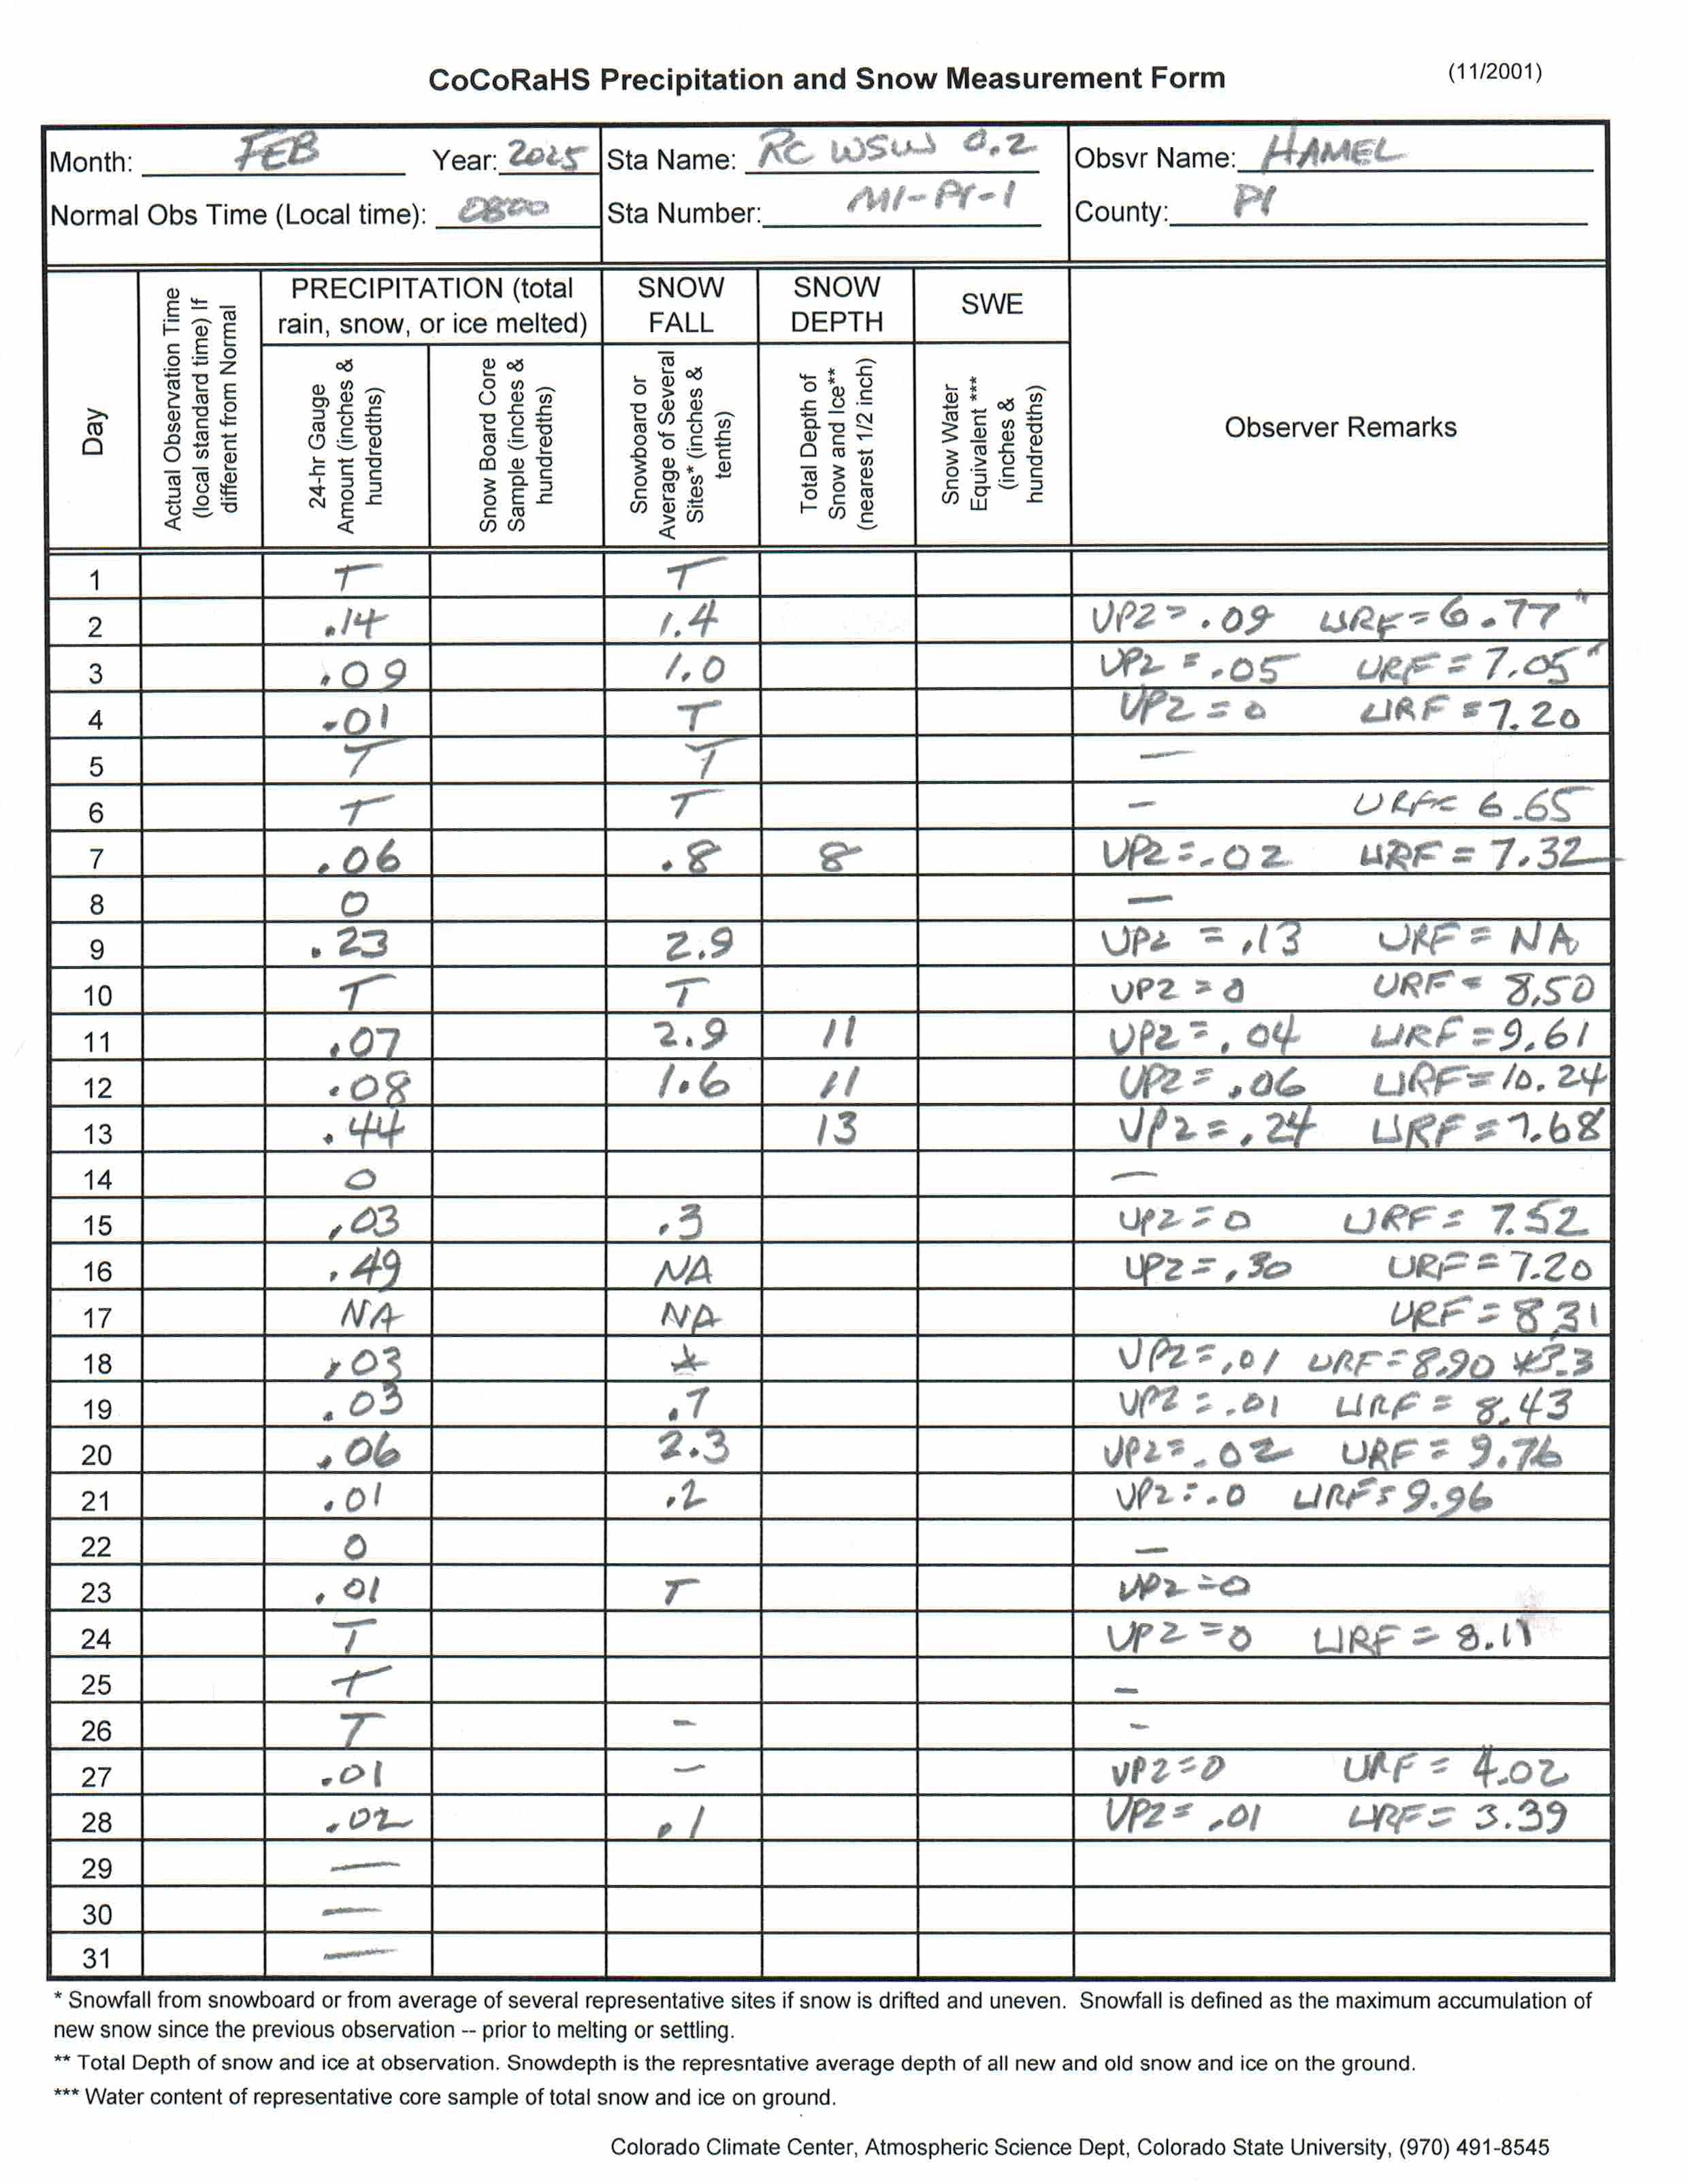 CoCoRaHS Precipitation and Snow Measurement Form (11/2001)
Month: FEB Year: 2025 Sta Name: RC WSW 0.2 Obsvr Name: HAMEL
Normal Obs Time (Local time): 0800 Sta Number: MI-PI-1 County: PI
PRECIPITATION (total rain, snow, or ice melted) SNOW FALL SNOW DEPTH SWE
Day
Actual Observation Time (local standard time) If different from Normal
24-hr Gauge Amount (inches & hundredths)
Snow Board Core Sample (inches & hundredths)
Snowboard or Average of Several Sites* (inches & tenths)
Total Depth of Snow and Ice** (nearest 1/2 inch)
Snow Water Equivalent *** (inches & hundredths)
Observer Remarks
1 T T
2 .14 1.4 UP2 = .09 URF = 6.77"
3 .09 1.0 UP2 = .05 URF = 7.05"
4 .01 T UP2 = 0 URF = 7.20
5 T T —
6 T T — URF = 6.65
7 .06 .8 8 UP2 = .02 URF = 7.32
8 0 —
9 .23 2.9 UP2 = .13 URF = NA
10 T T UP2 = 0 URF = 8.50
11 .07 2.9 11 UP2 = .04 URF = 9.61
12 .08 1.6 11 UP2 = .06 URF = 10.24
13 .44 13 UP2 = .24 URF = 7.68
14 0 —
15 .03 .3 UP2 = 0 URF = 7.52
16 .49 NA UP2 = .30 URF = 7.20
17 NA NA URF = 8.31
18 .03 * UP2 = .01 URF = 8.90 *3.3
19 .03 .7 UP2 = .01 URF = 8.43
20 .06 2.3 UP2 = .02 URF = 9.76
21 .01 .2 UP2 = .0 URF = 9.96
22 0 —
23 .01 T UP2 = 0
24 T UP2 = 0 URF = 8.11
25 T -
26 T - -
27 .01 — UP2 = 0 URF = 4.02
28 .02 .1 UP2 = .01 URF = 3.39
29 —
30 —
31 —
* Snowfall from snowboard or from average of several representative sites if snow is drifted and uneven. Snowfall is defined as the maximum accumulation of
new snow since the previous observation -- prior to melting or settling.
** Total Depth of snow and ice at observation. Snowdepth is the represntative average depth of all new and old snow and ice on the ground.
*** Water content of representative core sample of total snow and ice on ground.
Colorado Climate Center, Atmospheric Science Dept, Colorado State University, (970) 491-8545